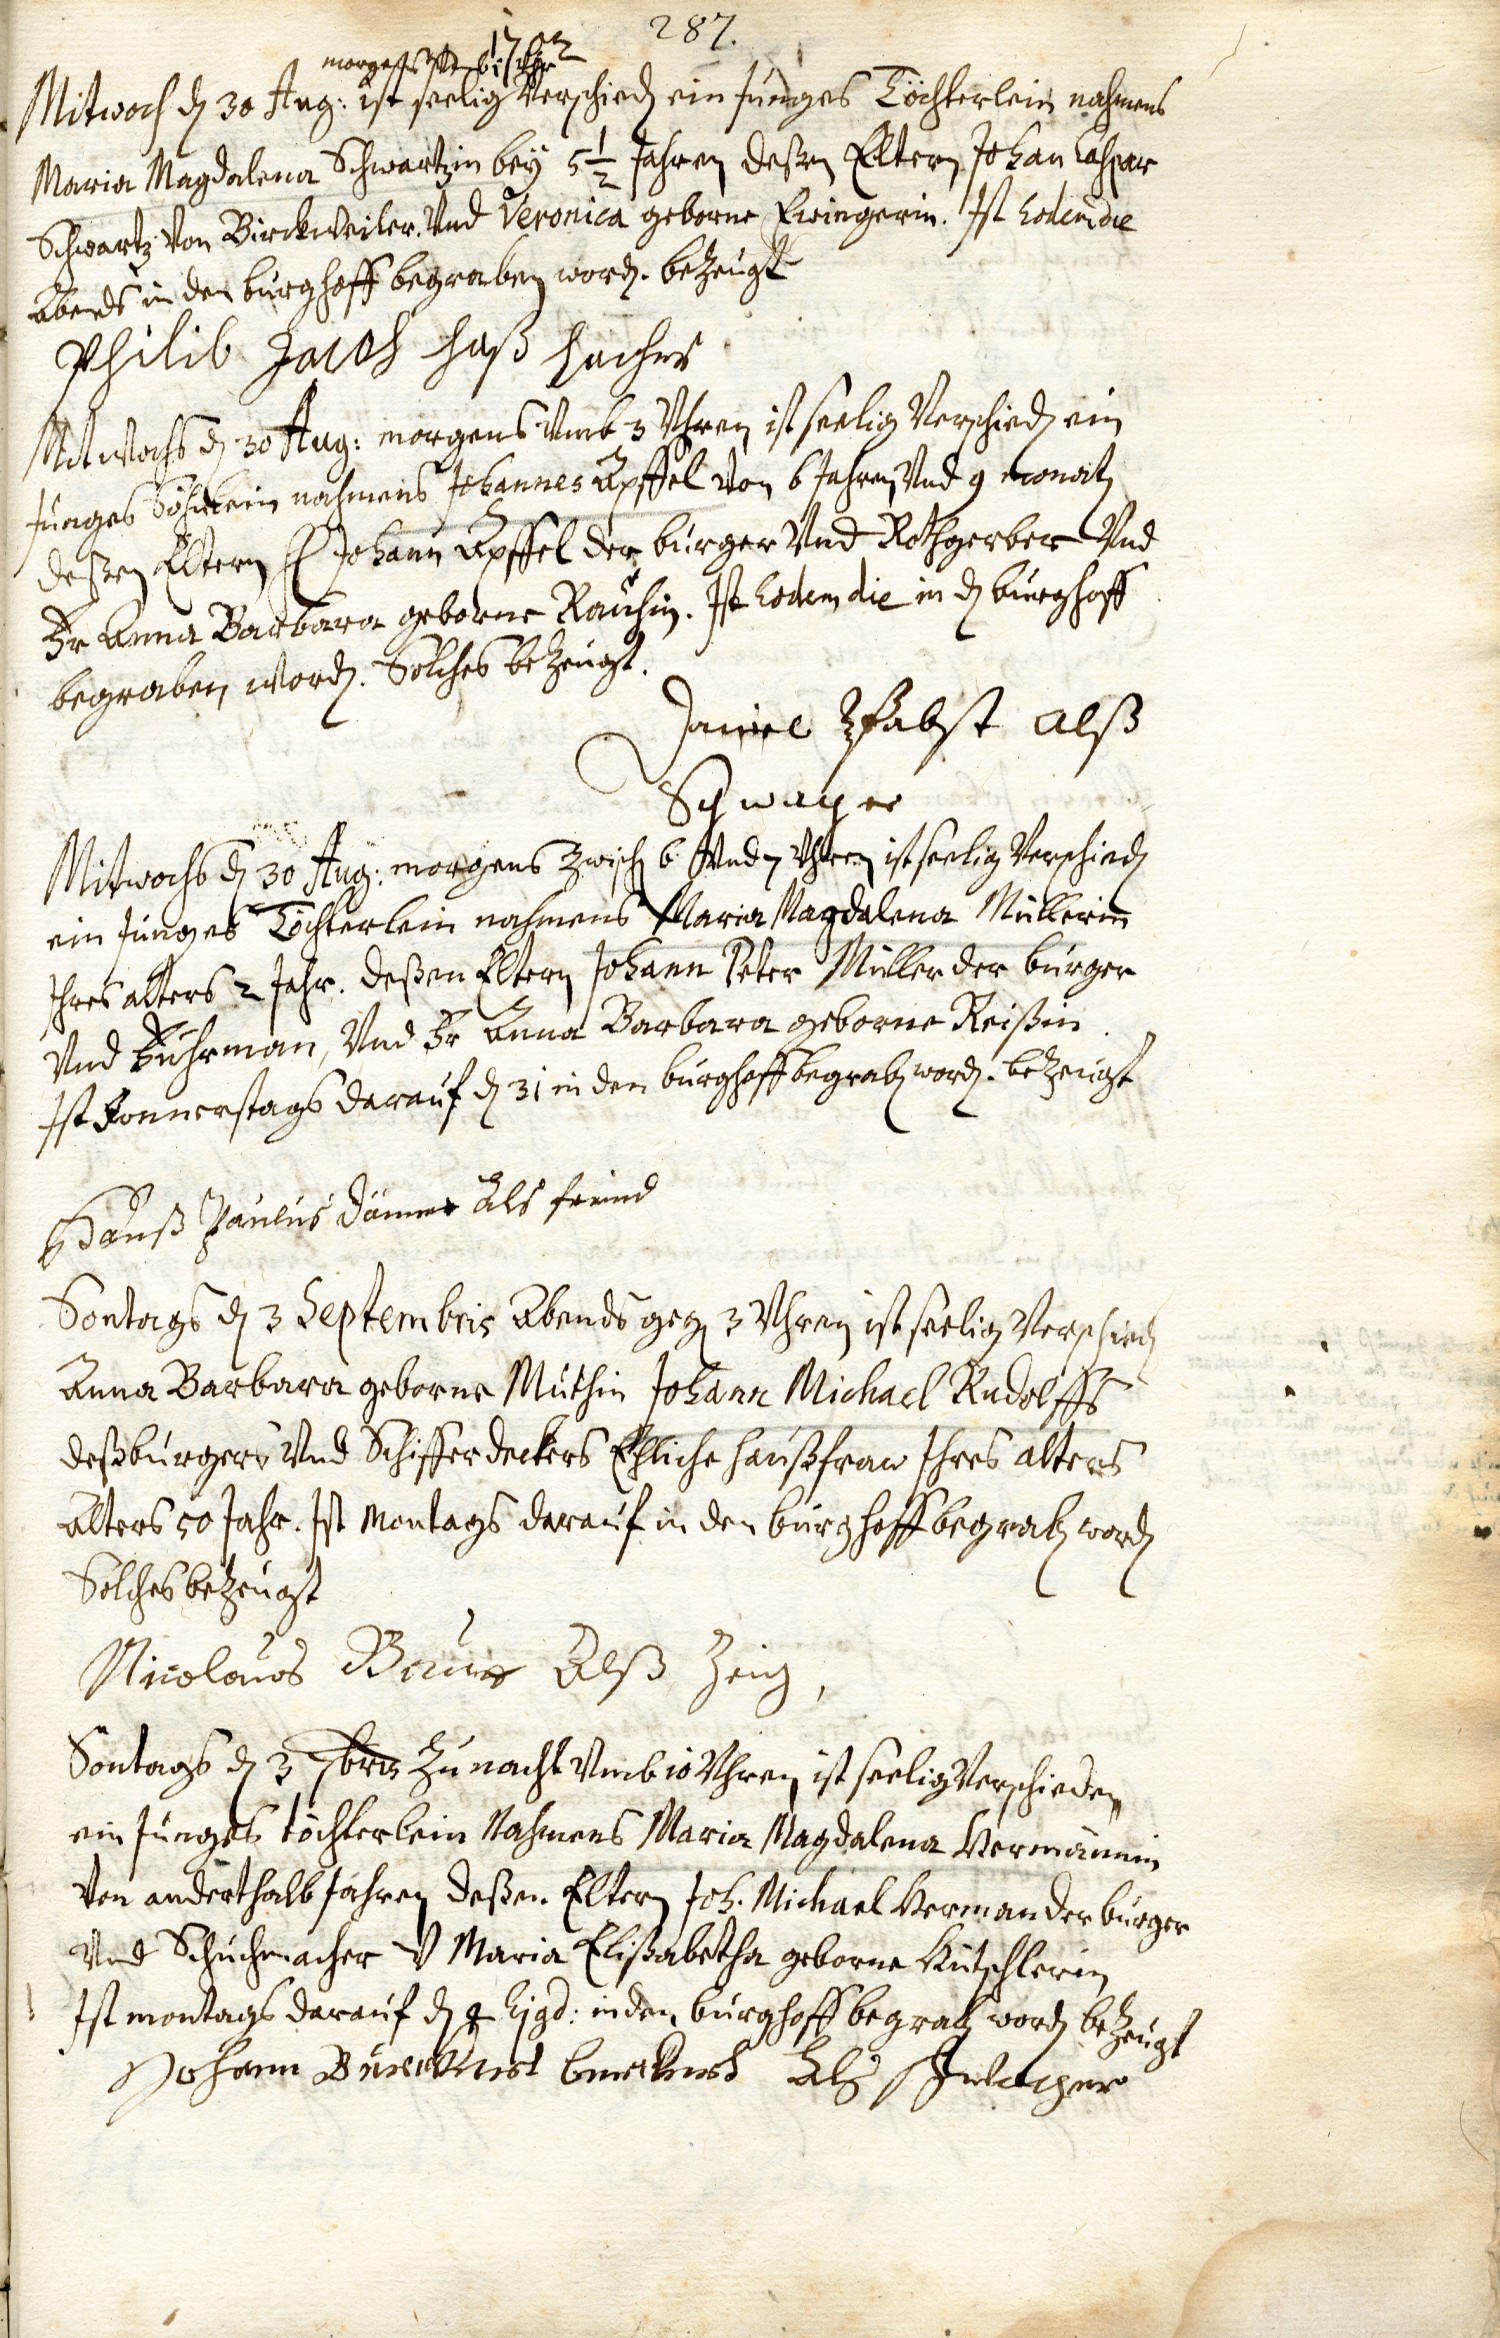 287.
1702
morgens Umb Uhr
Mitwoch dn 30 Aug: ist seelig Verschiedn ein Junges Töchterlein nahmens
Maria Magdalena Schwartzin bey 5 1/2 Jahren deßen Eltern Johan Caspar
Schwartz von Birckweiler. Und Veronica geborne Ewingerin. Ist eodem die
Abends in den burghoff begraben wordn. bezeugt
Philib Jacob haß
Mitwochs dn 30 Aug: morgens Umb 3 Uhren ist seelig Verschiedn ein
Junges Söhnlein nahmens Johannes Apffel von 6 Jahren Und 9 monatn
deßen Eltern H Johann Apffel der burger Und Rothgerber Und
Fr Anna Barbara geborne Rauhin. Ist eodem die in dn burghoff
begraben wordn. Solches bezeugt.
Daniel Pfabst alß
Schwager
Mitwochs dn 30 Aug: morgens zwischn 6 Und 7 Uhren ist seelig Verschiedn
ein Junges Töchterlein nahmens Maria Magdalena Müllerin
Ihres alters 2 Jahr. deßen Eltern Johann Peter Müller der burger
Und Fuhrman, Und Fr Anna Barbara geborne Reißin.
Ist Donnerstags darauf dn 31 in den burghoff begrabn wordn. bezeugt
Hanß Paulus Als freind
Sontags dn 3 Septembris Abends gegn 3 Uhren ist seelig Verschiedn
Anna Barbara geborne Muthin Johann Michael Rudolffs
deß burgers Und Schifferdeckers Ehliche haußfraw Ihres alters
Alters 50 Jahr. Ist Montags darauf in den burghoff begrabn wordn
Solches bezeugt
Nicolaus Baur Alß Zeig,
Sontags dn 3 7bris zu nacht Umb 10 Uhren ist seelig Verschieden
ein Junges töchterlein Nahmens Maria Magdalena Hermännin
Von anderthalb Jahren deßen Eltern Joh. Michael Herman der burger
Und Schuchmacher V Maria Elisabetha geborne Kutschlerin
Ist montags darauf dn 4 Ejsd: in den burghoff begrabn wordn bezeugt
Johann Als